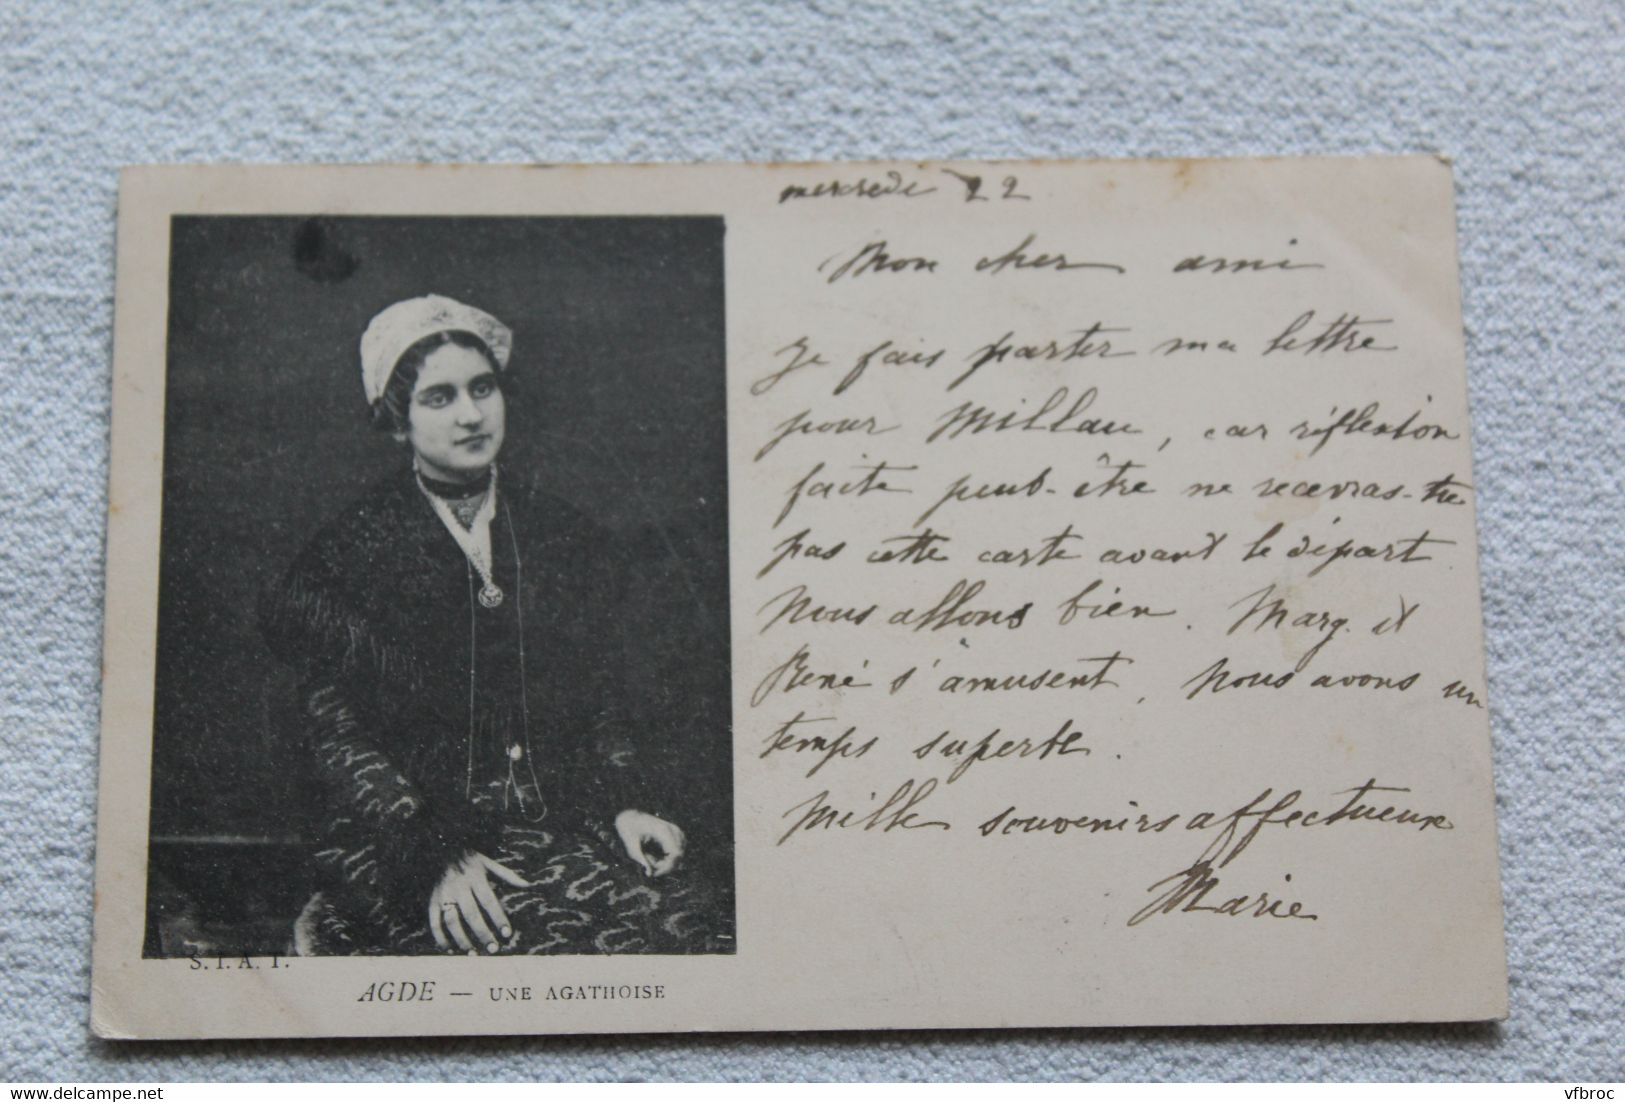 mercredi 22
Mon cher ami
Je fais partir ma lettre
pour Millau, car réflexion
faite peut-être ne recevras-tu
pas cette carte avant le départ
Nous allons bien. Marg. et
René s'amusent, Nous avons un
temps superbe.
Mille souvenirs affectueux
Marie
S. I. A. T.
AGDE — UNE AGATHOISE
delcampe.net
vfbroc